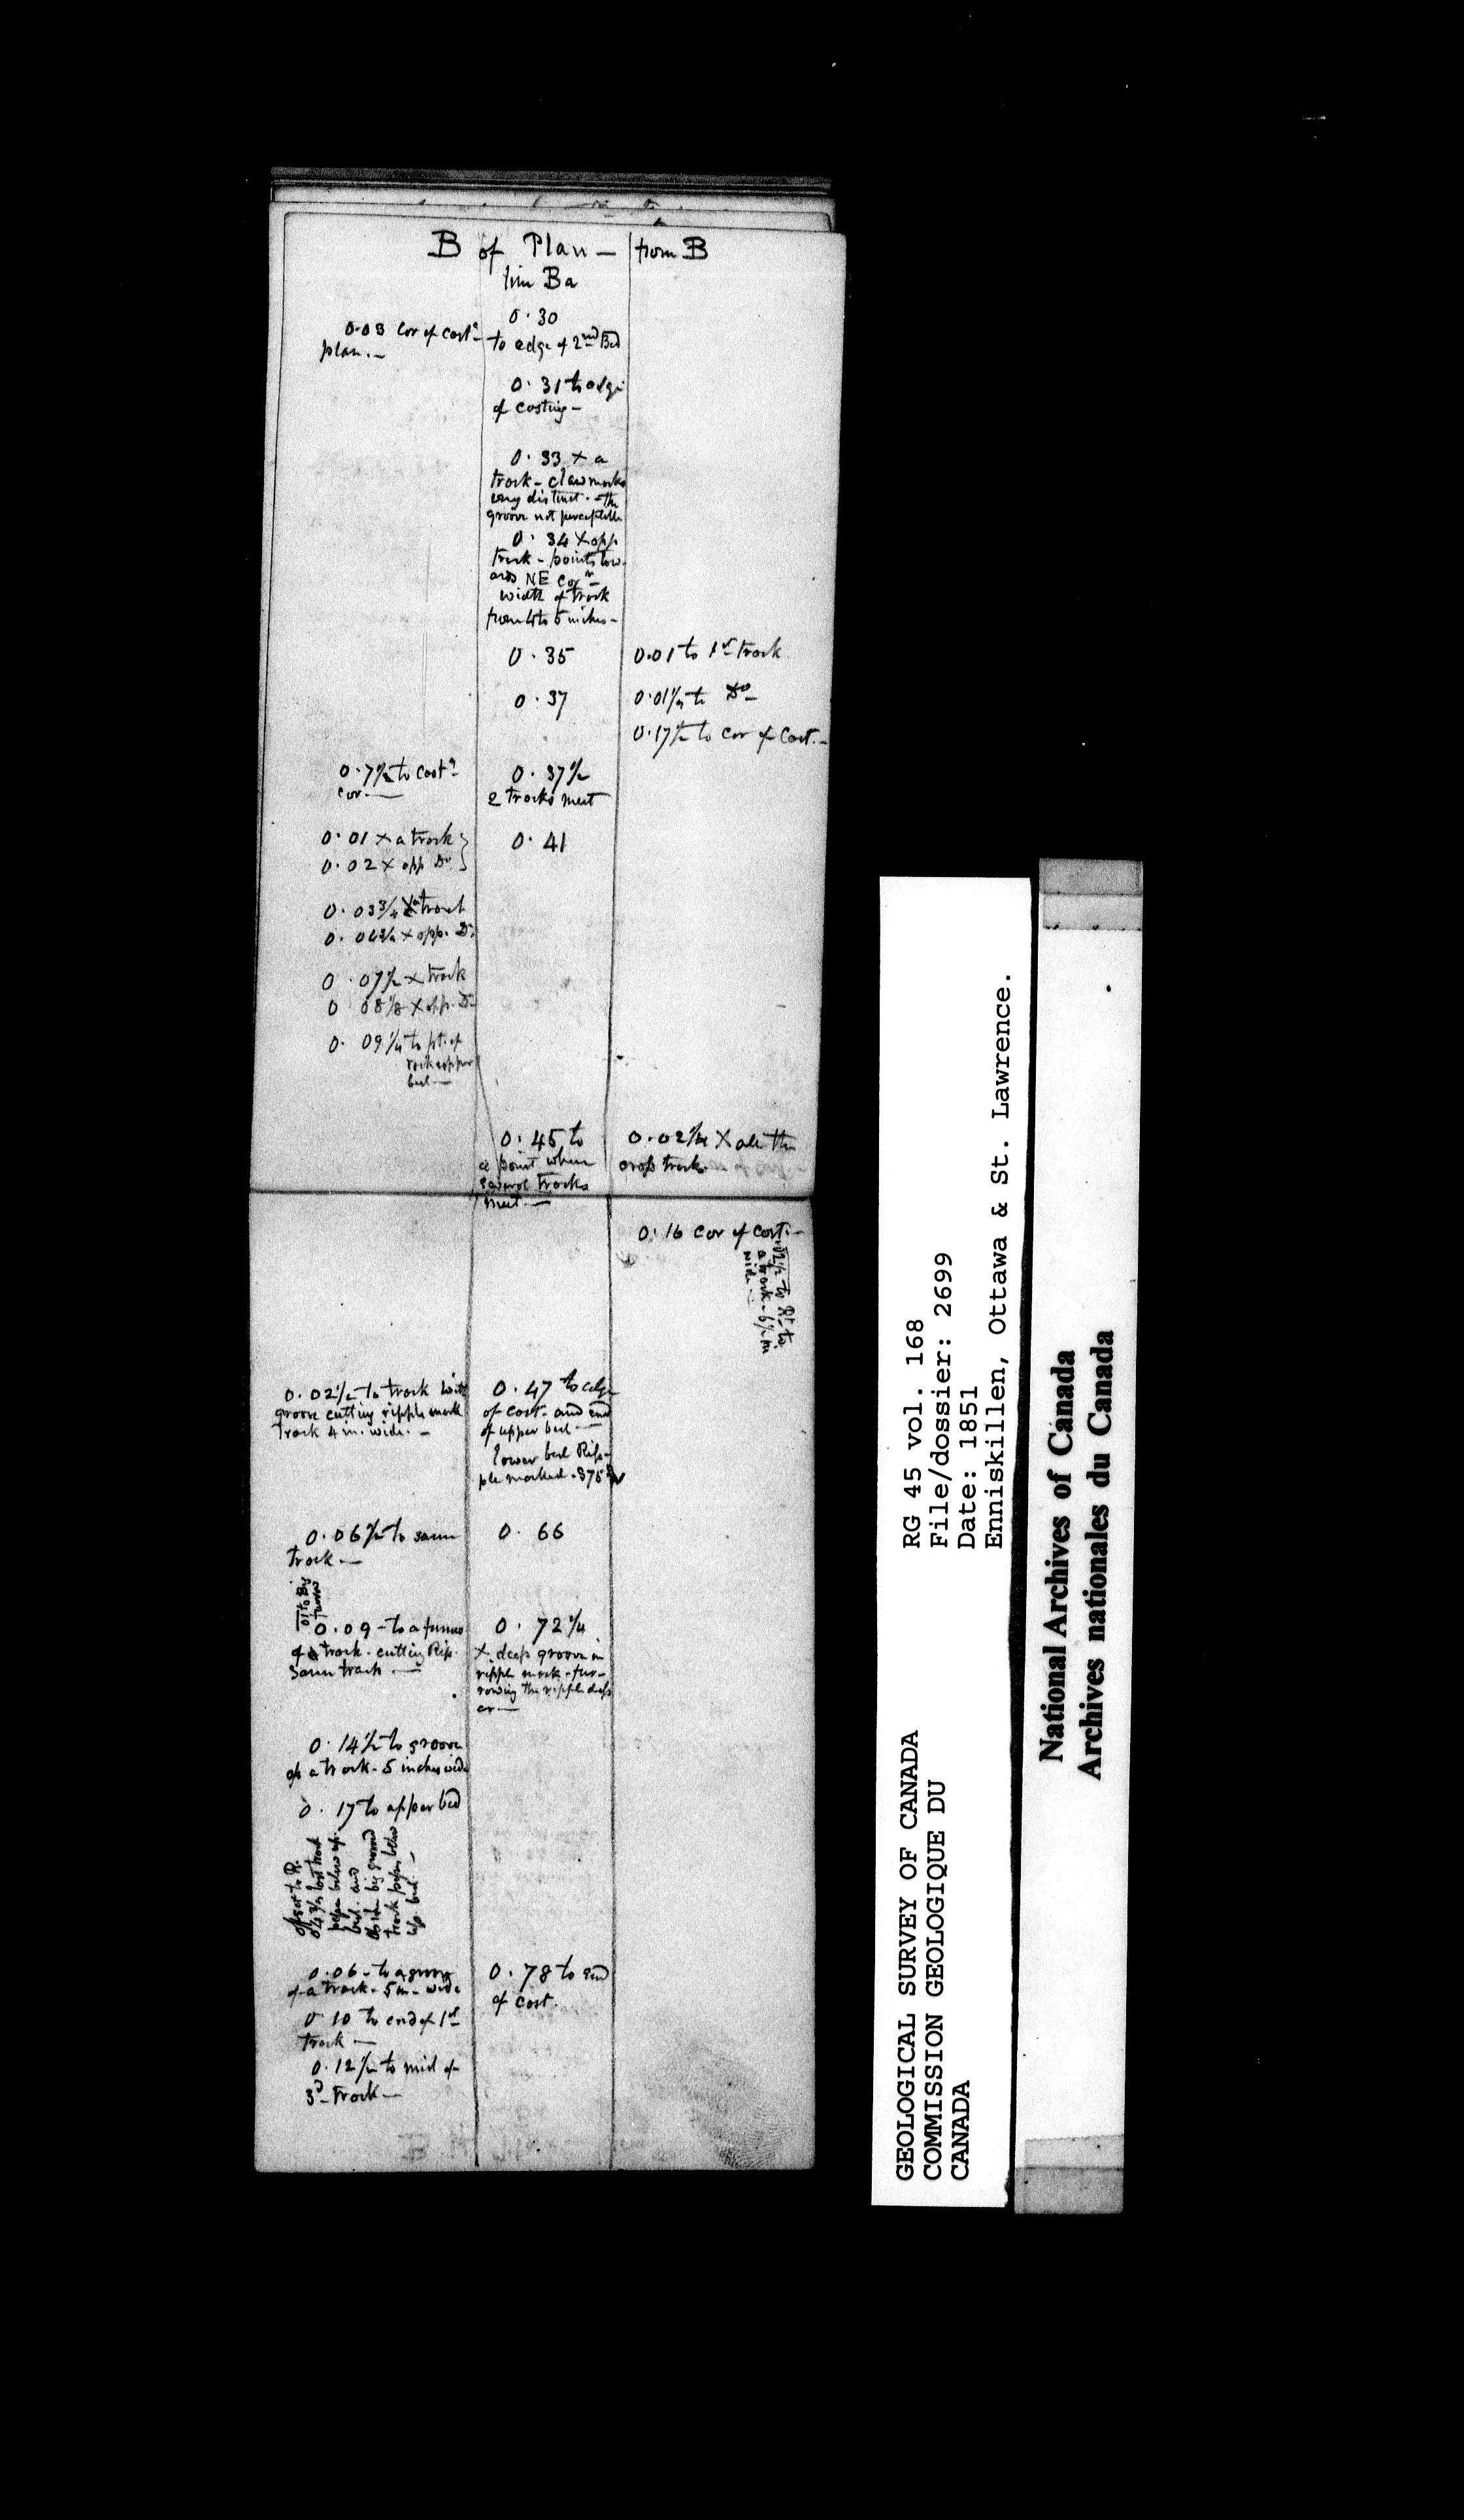 B of Plan — from B
lin Ba
0.03 Cor of cast.
plan. —
0.30
to edge of 2nd Bed
0.31 to edge
of casting —
0.33 × a
track — claw marks
very distinct — the
groove not perceptible
0.34 × opp
track — points tow-
ards NE Corr —
width of track
from 4 to 5 inches —
0.35
0.01 to 1st track
0.37
0.01½ to Do —
0.17½ to cor of Cast. —
0.7½ to cast
cor. —
0.37½
2 tracks meet
0.01 × a track
0.02 × opp Do
0.41
0.03¾ × track
0.04¾ × opp. Do
0.07½ × track
0 08⅛ × opp. Do
0.09¼ to pt. of
rock upper
bed —
0.45 to
a point where
several tracks
meet —
0.02½ × all the
cross track
0.16 Cor of cast. —
to Rt to
a track — 6½ in
wide —
0.02½ to track with
groove cutting ripple mark
track 4 in. wide. —
0.47 to edge
of cast — and end
of upper bed —
lower bed Rip-
ple marked .375
0.06½ to same
track —
0.66
01 to Big
furrow
0.09 — to a furrow
of a track — cutting Rip.
same track. —
0.72¼
× deep groove in
ripple mark — fur-
rowing the ripple deep
er —
0.14½ to groove
of a track — 5 inches wide
0.17 to upper bed
offset to R.
last track
below up.
bed. and
big groove
track below
up. bed —
0.06 — to a groove
of a track — 5 in — wide
0.78 to end
of cast.
0 10 to end of 1st
track —
0.12½ to mid of
3d track —
RG 45 vol. 168
File/dossier: 2699
Date: 1851
Enniskillen, Ottawa & St. Lawrence.
GEOLOGICAL SURVEY OF CANADA
COMMISSION GEOLOGIQUE DU
CANADA
National Archives of Canada
Archives nationales du Canada